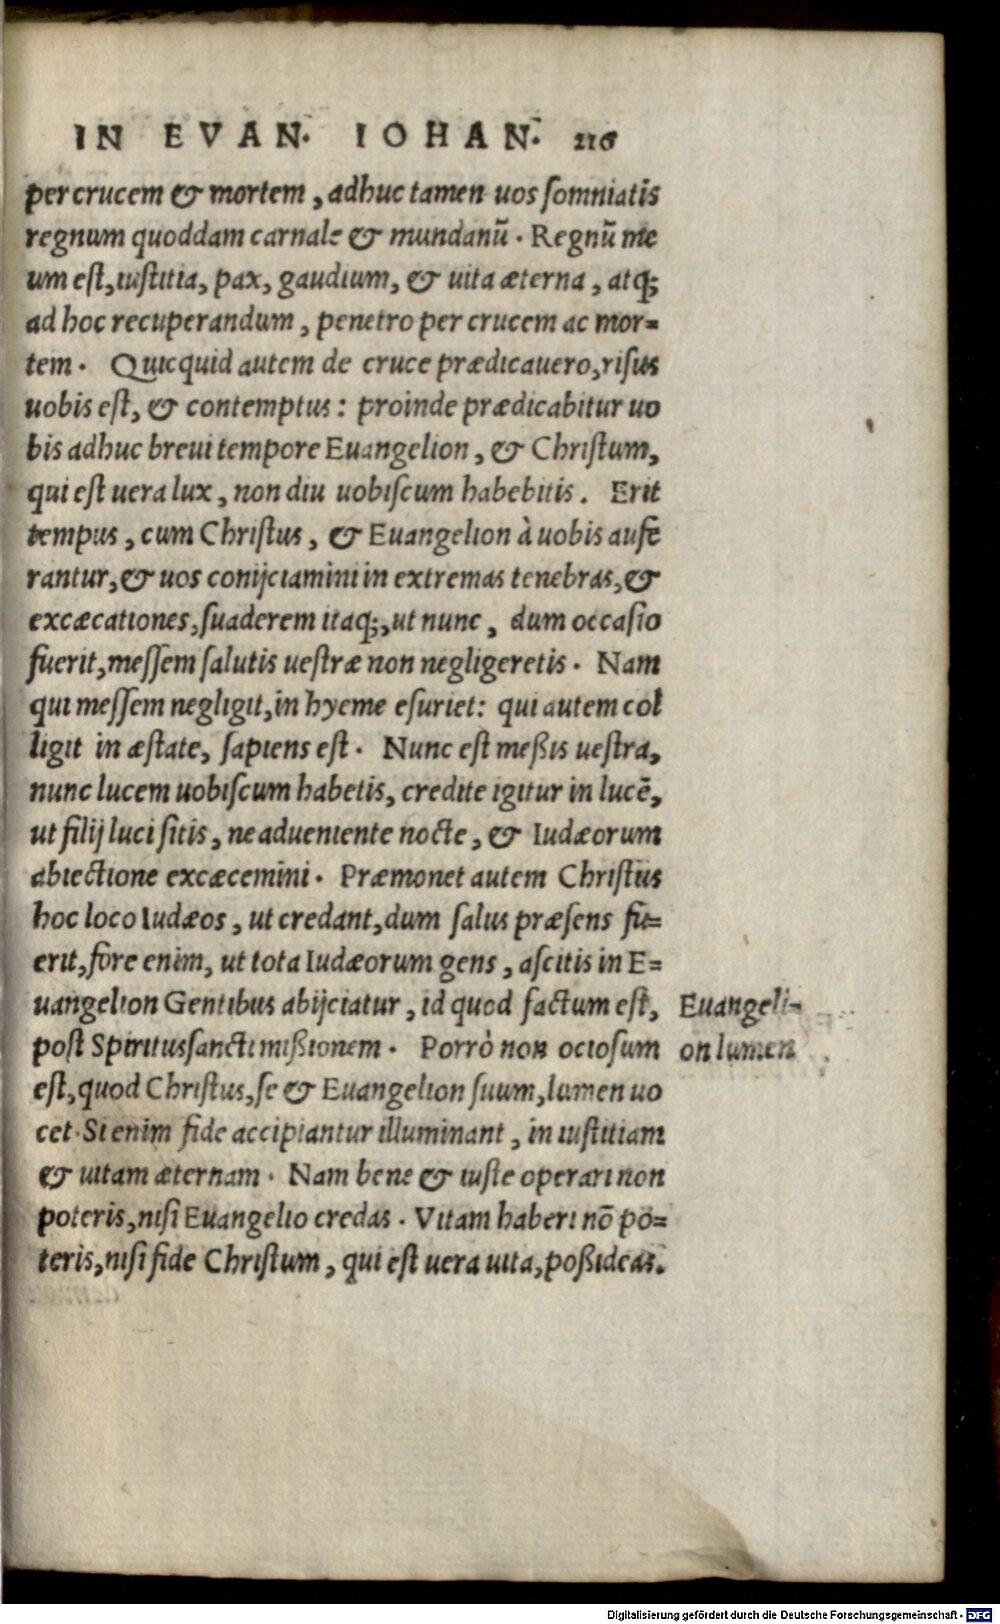 IN EVAN. IOHAN. 216
per crucem & mortem, adhuc tamen uos somniatis
regnum quoddam carnale & mundanũ. Regnũ me
um est, iustitia, pax, gaudium, & uita æterna, atq;
ad hoc recuperandum, penetro per crucem ac mor=
tem. Quicquid autem de cruce prædicauero, risus
uobis est, & contemptus: proinde prædicabitur uo
bis adhuc breui tempore Euangelion, & Christum,
qui est uera lux, non diu uobiscum habebitis. Erit
tempus, cum Christus, & Euangelion à uobis aufe
rantur, & uos conijciamini in extremas tenebras, &
excæcationes, suaderem itaq;, ut nunc, dum occasio
fuerit, messem salutis uestræ non negligeretis. Nam
qui messem negligit, in hyeme esuriet: qui autem col
ligit in æstate, sapiens est. Nunc est meßis uestra,
nunc lucem uobiscum habetis, credite igitur in lucẽ,
ut filij luci sitis, ne adueniente nocte, & Iudæorum
abiectione excæcemini. Præmonet autem Christus
hoc loco Iudæos, ut credant, dum salus præsens fu=
erit, fore enim, ut tota Iudæorum gens, ascitis in E=
uangelion Gentibus abijciatur, id quod factum est,
post Spiritussancti mißionem. Porrò non ociosum
est, quod Christus, se & Euangelion suum, lumen uo
cet. Si enim fide accipiantur illuminant, in iustitiam
& uitam æternam. Nam bene & iuste operari non
poteris, nisi Euangelio credas. Vitam haberi nõ po=
teris, nisi fide Christum, qui est uera uita, poßideas.
Euangeli-
on lumen
Digitalisierung gefördert durch die Deutsche Forschungsgemeinschaft - DFG